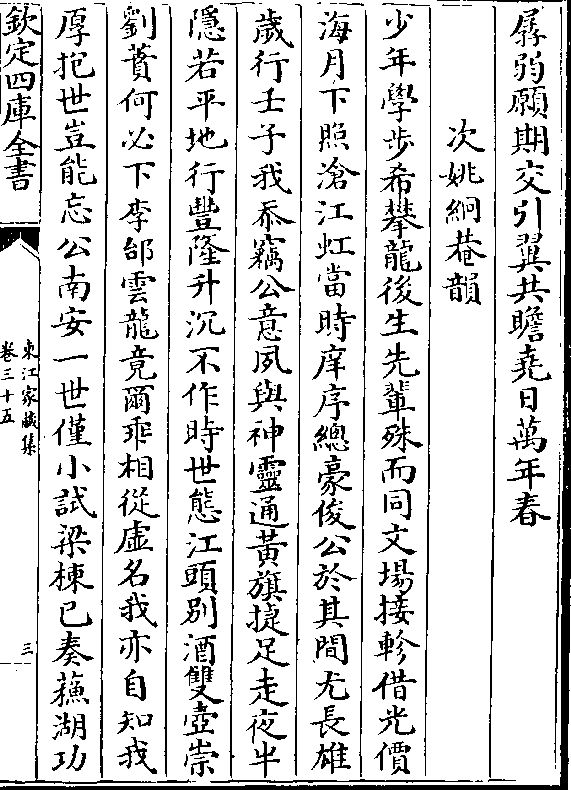 孱弱願期交引翼共瞻堯日萬年春
次姚絅菴韻
少年學步希攀龍後生先輩殊而同文場接軫借光價
海月下照滄江虹當時庠序總豪俊公於其間尤長雄
歲行壬子我忝竊公意夙與神靈通黃旗捷足走夜半
隱若平地行豐隆升沉不作時世態江頭別酒雙壺崇
劉蕡何必下李郃雲龍竟爾乖相從虛名我亦自知我
厚抱世豈能忘公南安一世僅小試梁棟已奏蘓湖功
欽定四庫全書
東江家藏集
卷三十五
三